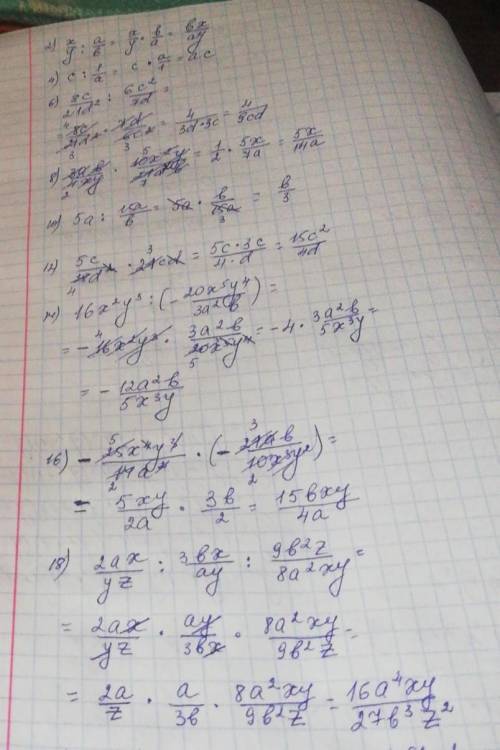 2) x/y : a/b = x/y · b/a = bx/ay
4) c : 1/a = c · a/1 = a·c
6) 8c/21d² : 6c²/7d =
= 8c/21d² · 7d/6c² = 4/3d·3c = 4/9cd
= 1/2 · 5x/7a = 5x/14a
10) 5a : 15a/b = 5a · b/15a = b/3
12) 5c/ · = 5c·3c/4·d = 15c²/4d
14) 16x²y³ : (- 20x⁵y⁴/3a²b) =
= - 16x²y³ · 3a²b/20x⁵y⁴ = -4 · 3a²b/5x³y =
= - 12a²b/5x³y
16) - · (- ) =
= 5xy/2a · 3b/2 = 15bxy/4a
18) 2ax/yz : 3bx/ay : 9b²z/8a²xy =
= 2ax/yz · ay/3bx · 8a²xy/9b²z =
= 2a/z · a/3b · 8a²xy/9b²z = 16a⁴xy/27b³z²